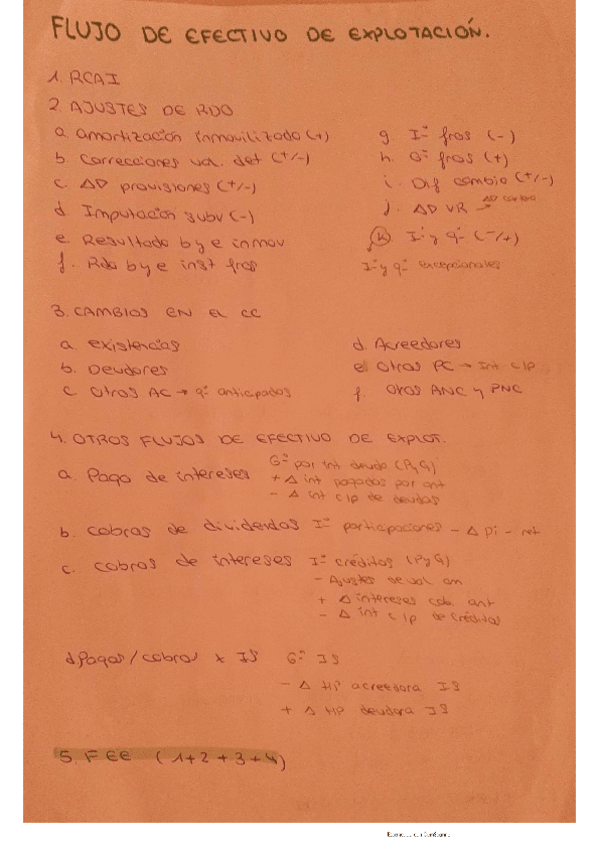 FLUJO DE EFECTIVO DE EXPLOTACIÓN.
1. RCAI
2. AJUSTES DE RDO
a. amortización inmovilizado (+)
b. Correcciones val. det (+/-)
c. ΔD provisiones (+/-)
d. Imputación subv (-)
e. Resultado b y e inmov
f. Rdo b y e inst fros
g Iº fros (-)
h. Gº fros (+)
i. Dif cambio (+/-)
j. ΔD VR →
k. Iº y gº (-/+)
Iº y gº excepcionales
3. CAMBIOS EN EL CC
a. existencias
b. Deudores
c. Otros AC → gº anticipados
d. Acreedores
e. Otros PC → Int c/p
f. Otros ANC y PNC
4. OTROS FLUJOS DE EFECTIVO DE EXPLOT.
a. Pago de intereses
Gº por int deuda (PyG)
+ Δ int pagados por ant
- Δ int c/p de deudas
b. cobros de dividendos Iº participaciones - Δ Di - ret
c. cobros de intereses Iº créditos (PyG)
- Ajustes de val
+ Δ intereses cob. ant
- Δ int c/p de créditos
d Pagos/cobros x IS Gº IS
- Δ HP acreedora IS
+ Δ HP deudora IS
5 FEE (1+2+3+4)